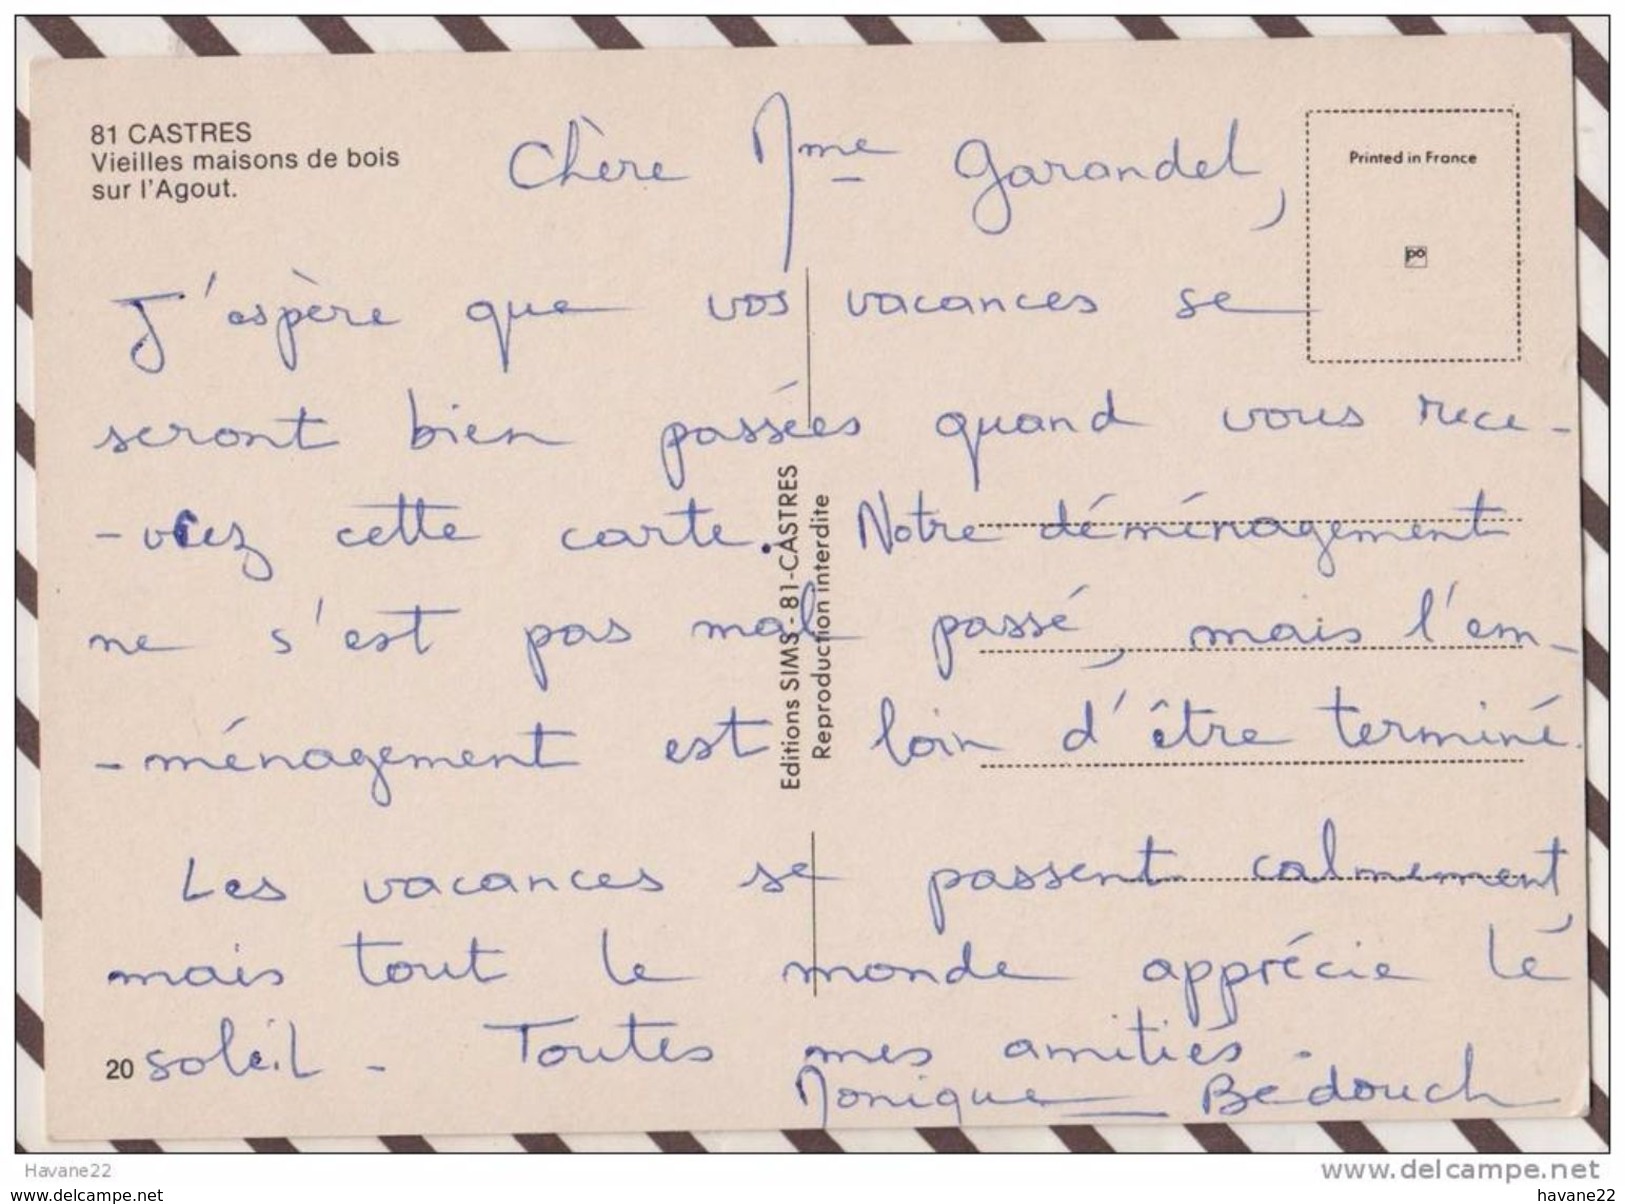 81 CASTRES
Vieilles maisons de bois
sur l'Agout.
Printed in France
po
Chère Mme Garandel,
J'espère que vos vacances se
seront bien passées quand vous rece-
-vrez cette carte. Notre déménagement
ne s'est pas mal passé, mais l'em-
-ménagement est loin d'être terminé.
Les vacances se passent calmement,
mais tout le monde apprécie le
soleil - Toutes mes amitiés.
Monique Bedouch
20
Editions SIMS - 81-CASTRES
Reproduction interdite
Havane22
www.delcampe.net
www.delcampe.net
havane22